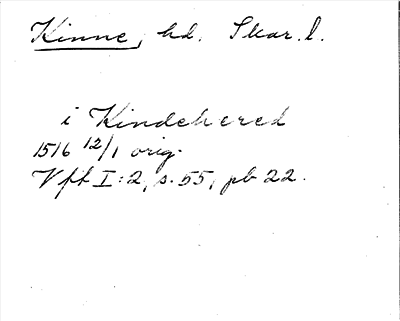 Kinne, hd. Skar. l.
i Kindehered
1516 12/1 orig.
Vfk I:2, s. 55, pb 22.